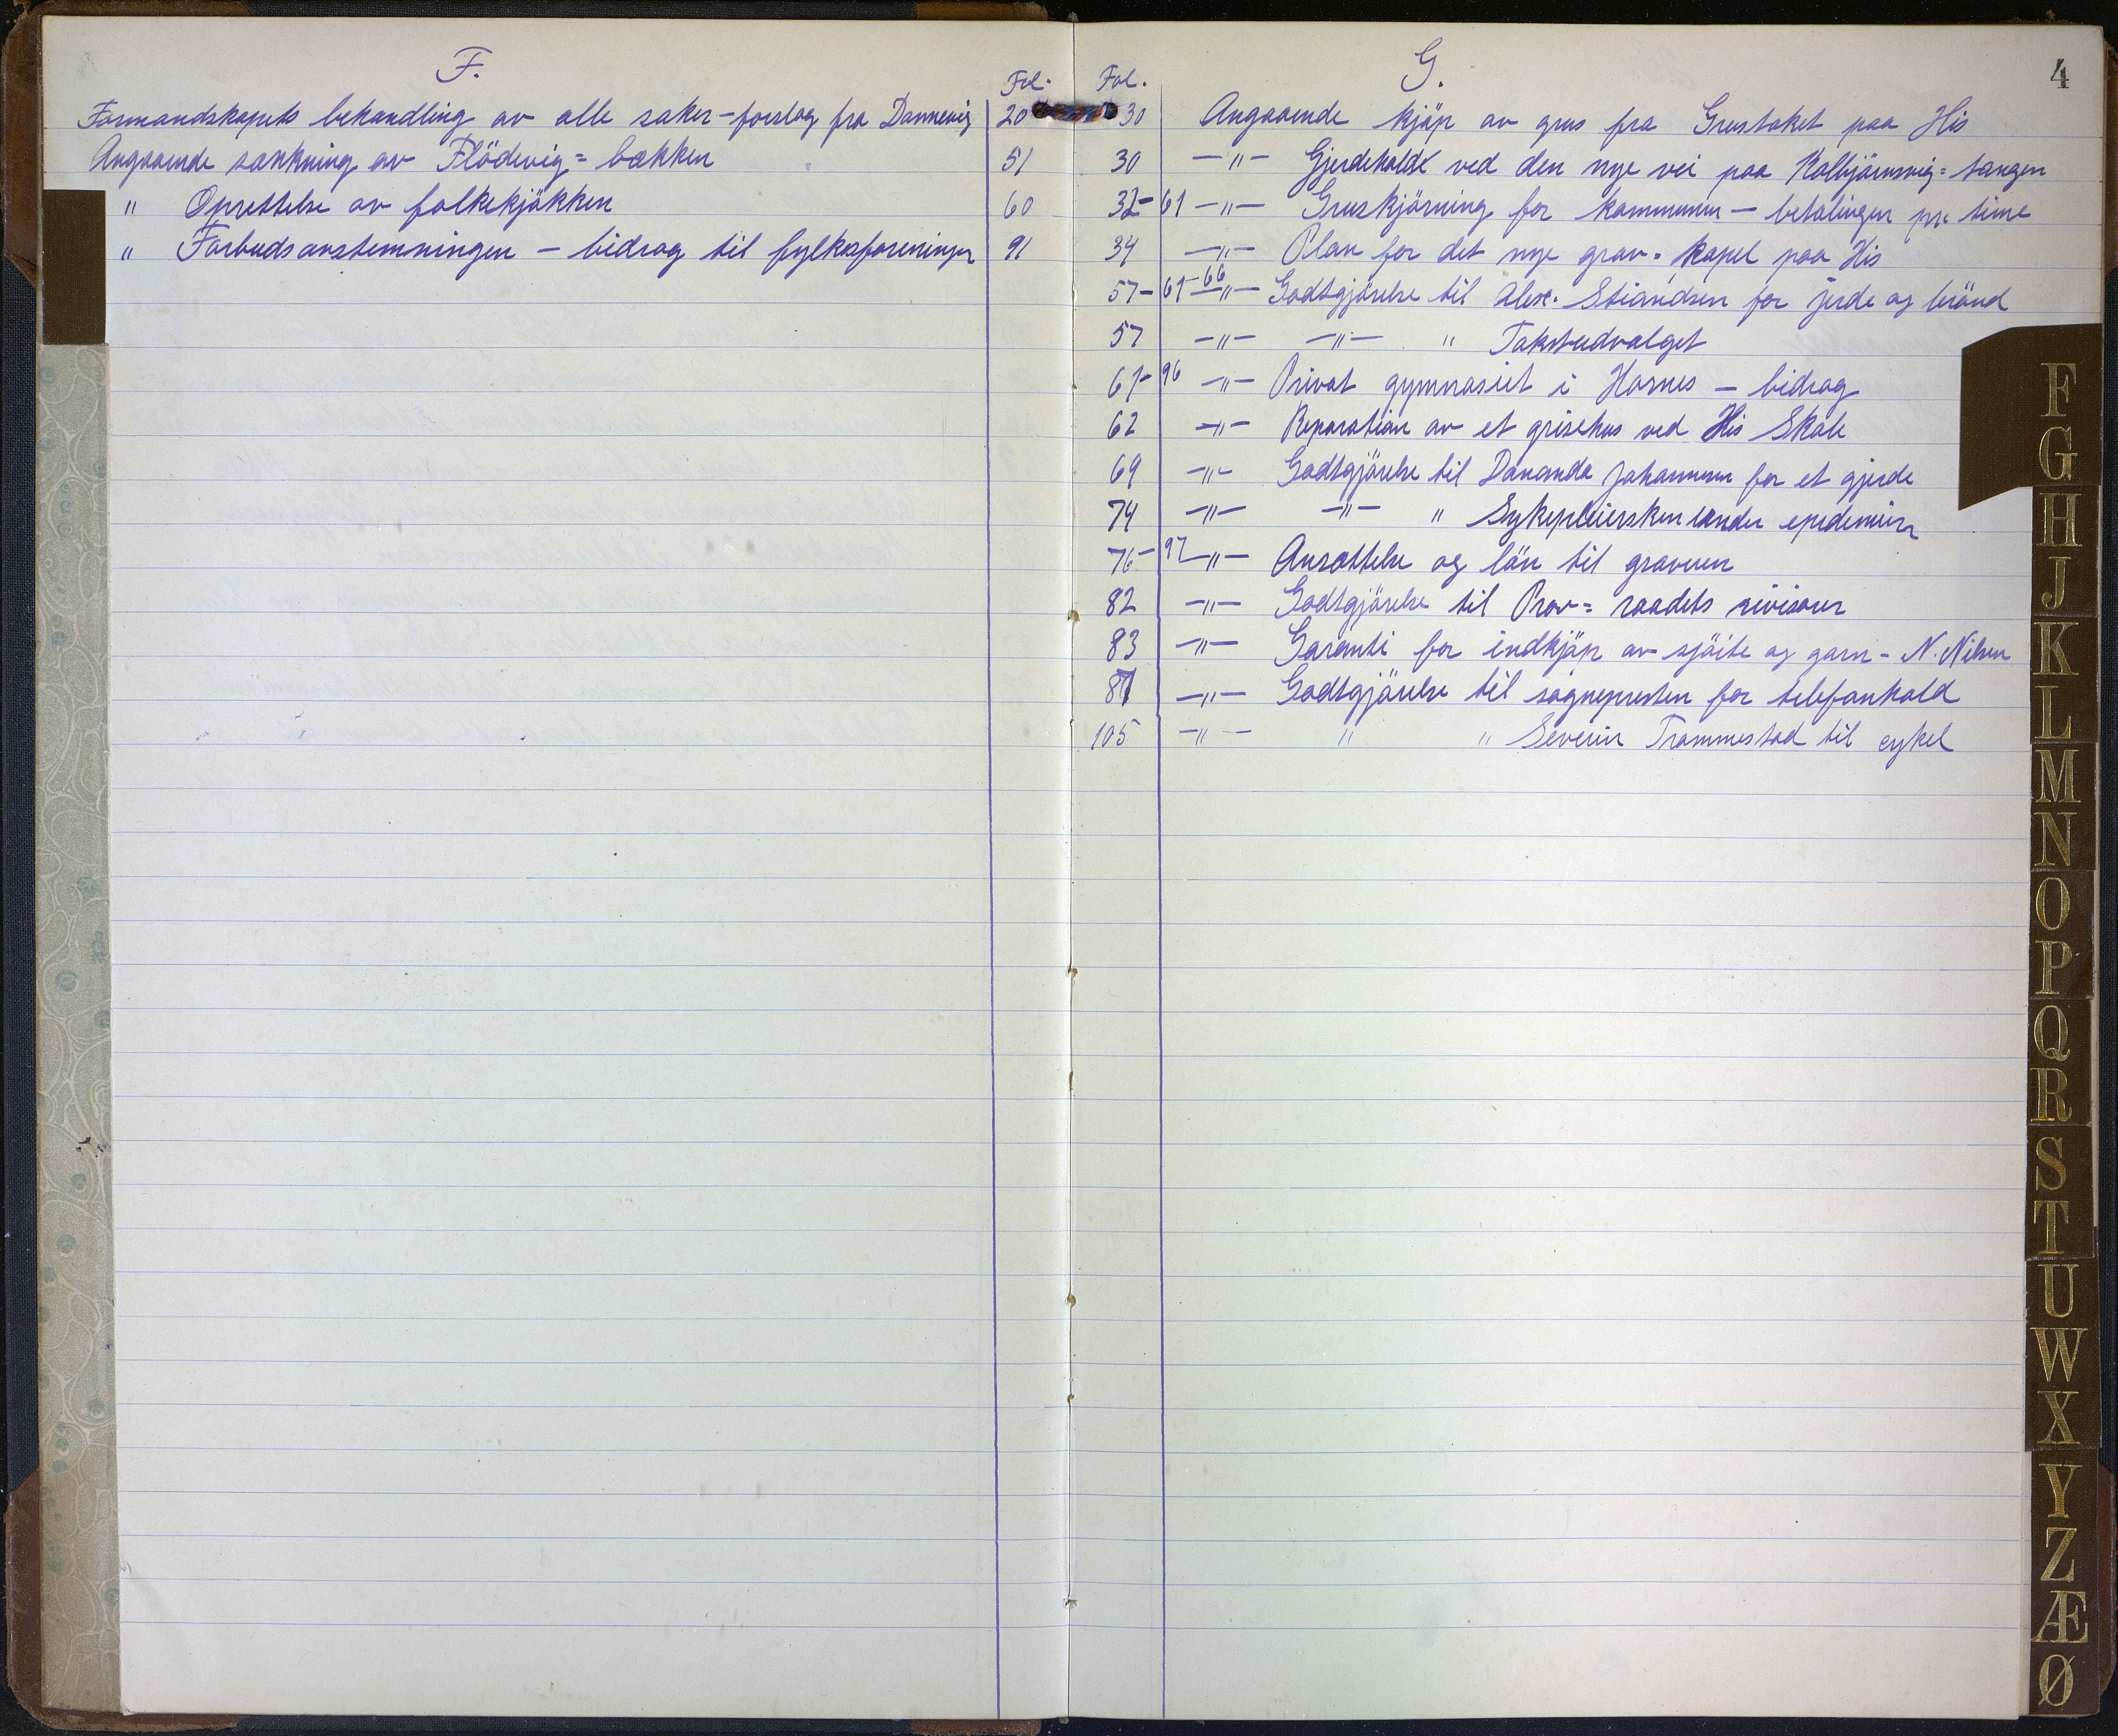 F.
Fol.
Formandskapets behandling av alle saker - forslag fra Dannevig 20
Angaaende sænkning av Flödevig = bækken 51
" Oprettelse av folkekjökken 60
" Forbudsavstemningen - bidrag til fylkesforeningen 91
4
G.
Fol.
30 Angaaende kjöp av grus fra Grustaket paa His
30 -"- Gjerdehold ved den nye vei paa Kolbjörnsvig = tangen
32-61 -"- Gruskjörning for kommunen - betalingen pr. time
34 -"- Plan for det nye grav = kapel paa His
57-61-66 -"- Godtgjörelse til Alex. Stiandsen for jerde og brönd
57 -"- -"- " Takstudvalget
61-96 -"- Privat gymnasiet i Hornes - bidrag
62 -"- Reparation av et grisehus ved His Skole
69 -"- Godtgjörelse til Johannesen for et gjerde
74 -"- -"- " Sykepleiersken under epidemien
76-97 -"- Ansættelse og lön til graveren
82 -"- Godtgjörelse til Prov = raadets revisorer
83 -"- Garanti for indkjöp av sjöite og garn - N. Nilsen
87 -"- Godtgjörelse til sognepresten for telefonhold
105 -"- " " Severin Trommestad til cykel
F
G
H
J
K
L
M
N
O
P
Q
R
S
T
U
W
X
Y
Z
Æ
Ø